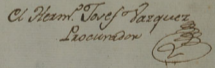 El Herm.º Josef Vazquez
Procurador